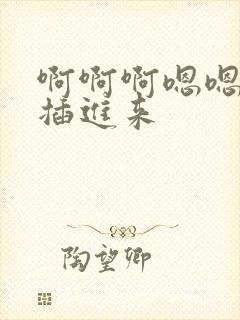 啊啊啊嗯嗯
插进来
陶望卿